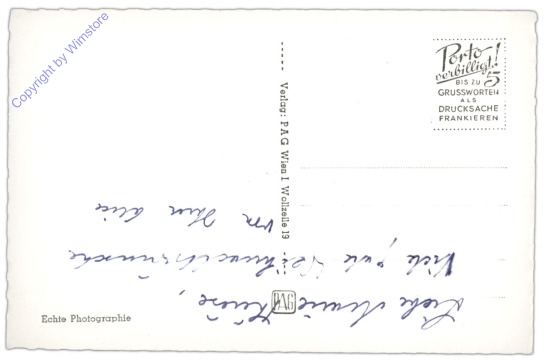 Copyright by Wimstore
Porto
verbilligt!
BIS ZU 5
GRUSSWORTEN
ALS
DRUCKSACHE
FRANKIEREN
Verlag: PAG Wien I Wollzeile 19
PAG
Echte Photographie
Liebe
Viele gute Weihnachtswünsche
von